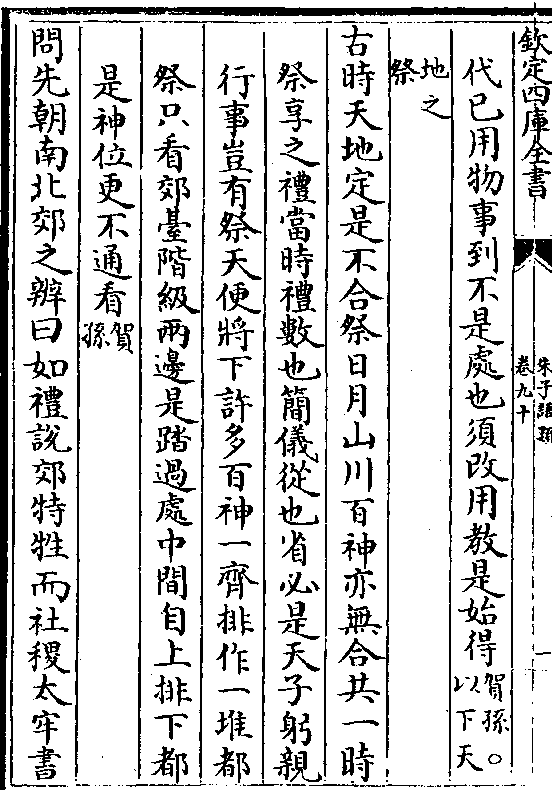 欽定四庫全書
朱子語類
卷九十
一
代已用物事到不是處也須改用教是始得賀孫。以下天
地之
祭
古時天地定是不合祭日月山川百神亦無合共一時
祭享之禮當時禮數也簡儀從也省必是天子躬親
行事豈有祭天便將下許多百神一齊排作一堆都
祭只看郊臺階級兩邊是踏過處中間自上排下都
是神位更不通看賀孫
問先朝南北郊之辨曰如禮說郊特牲而社稷太牢書